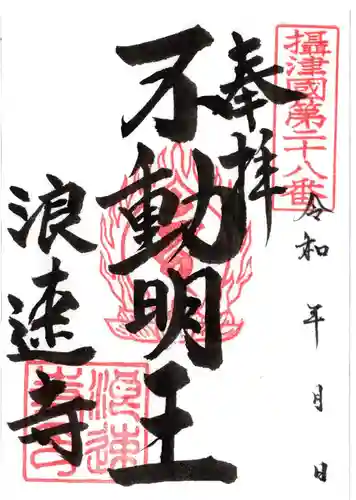 攝津國第二十八番
奉拝
令和 年 月 日
不動明王
浪速寺
浪速
寺印